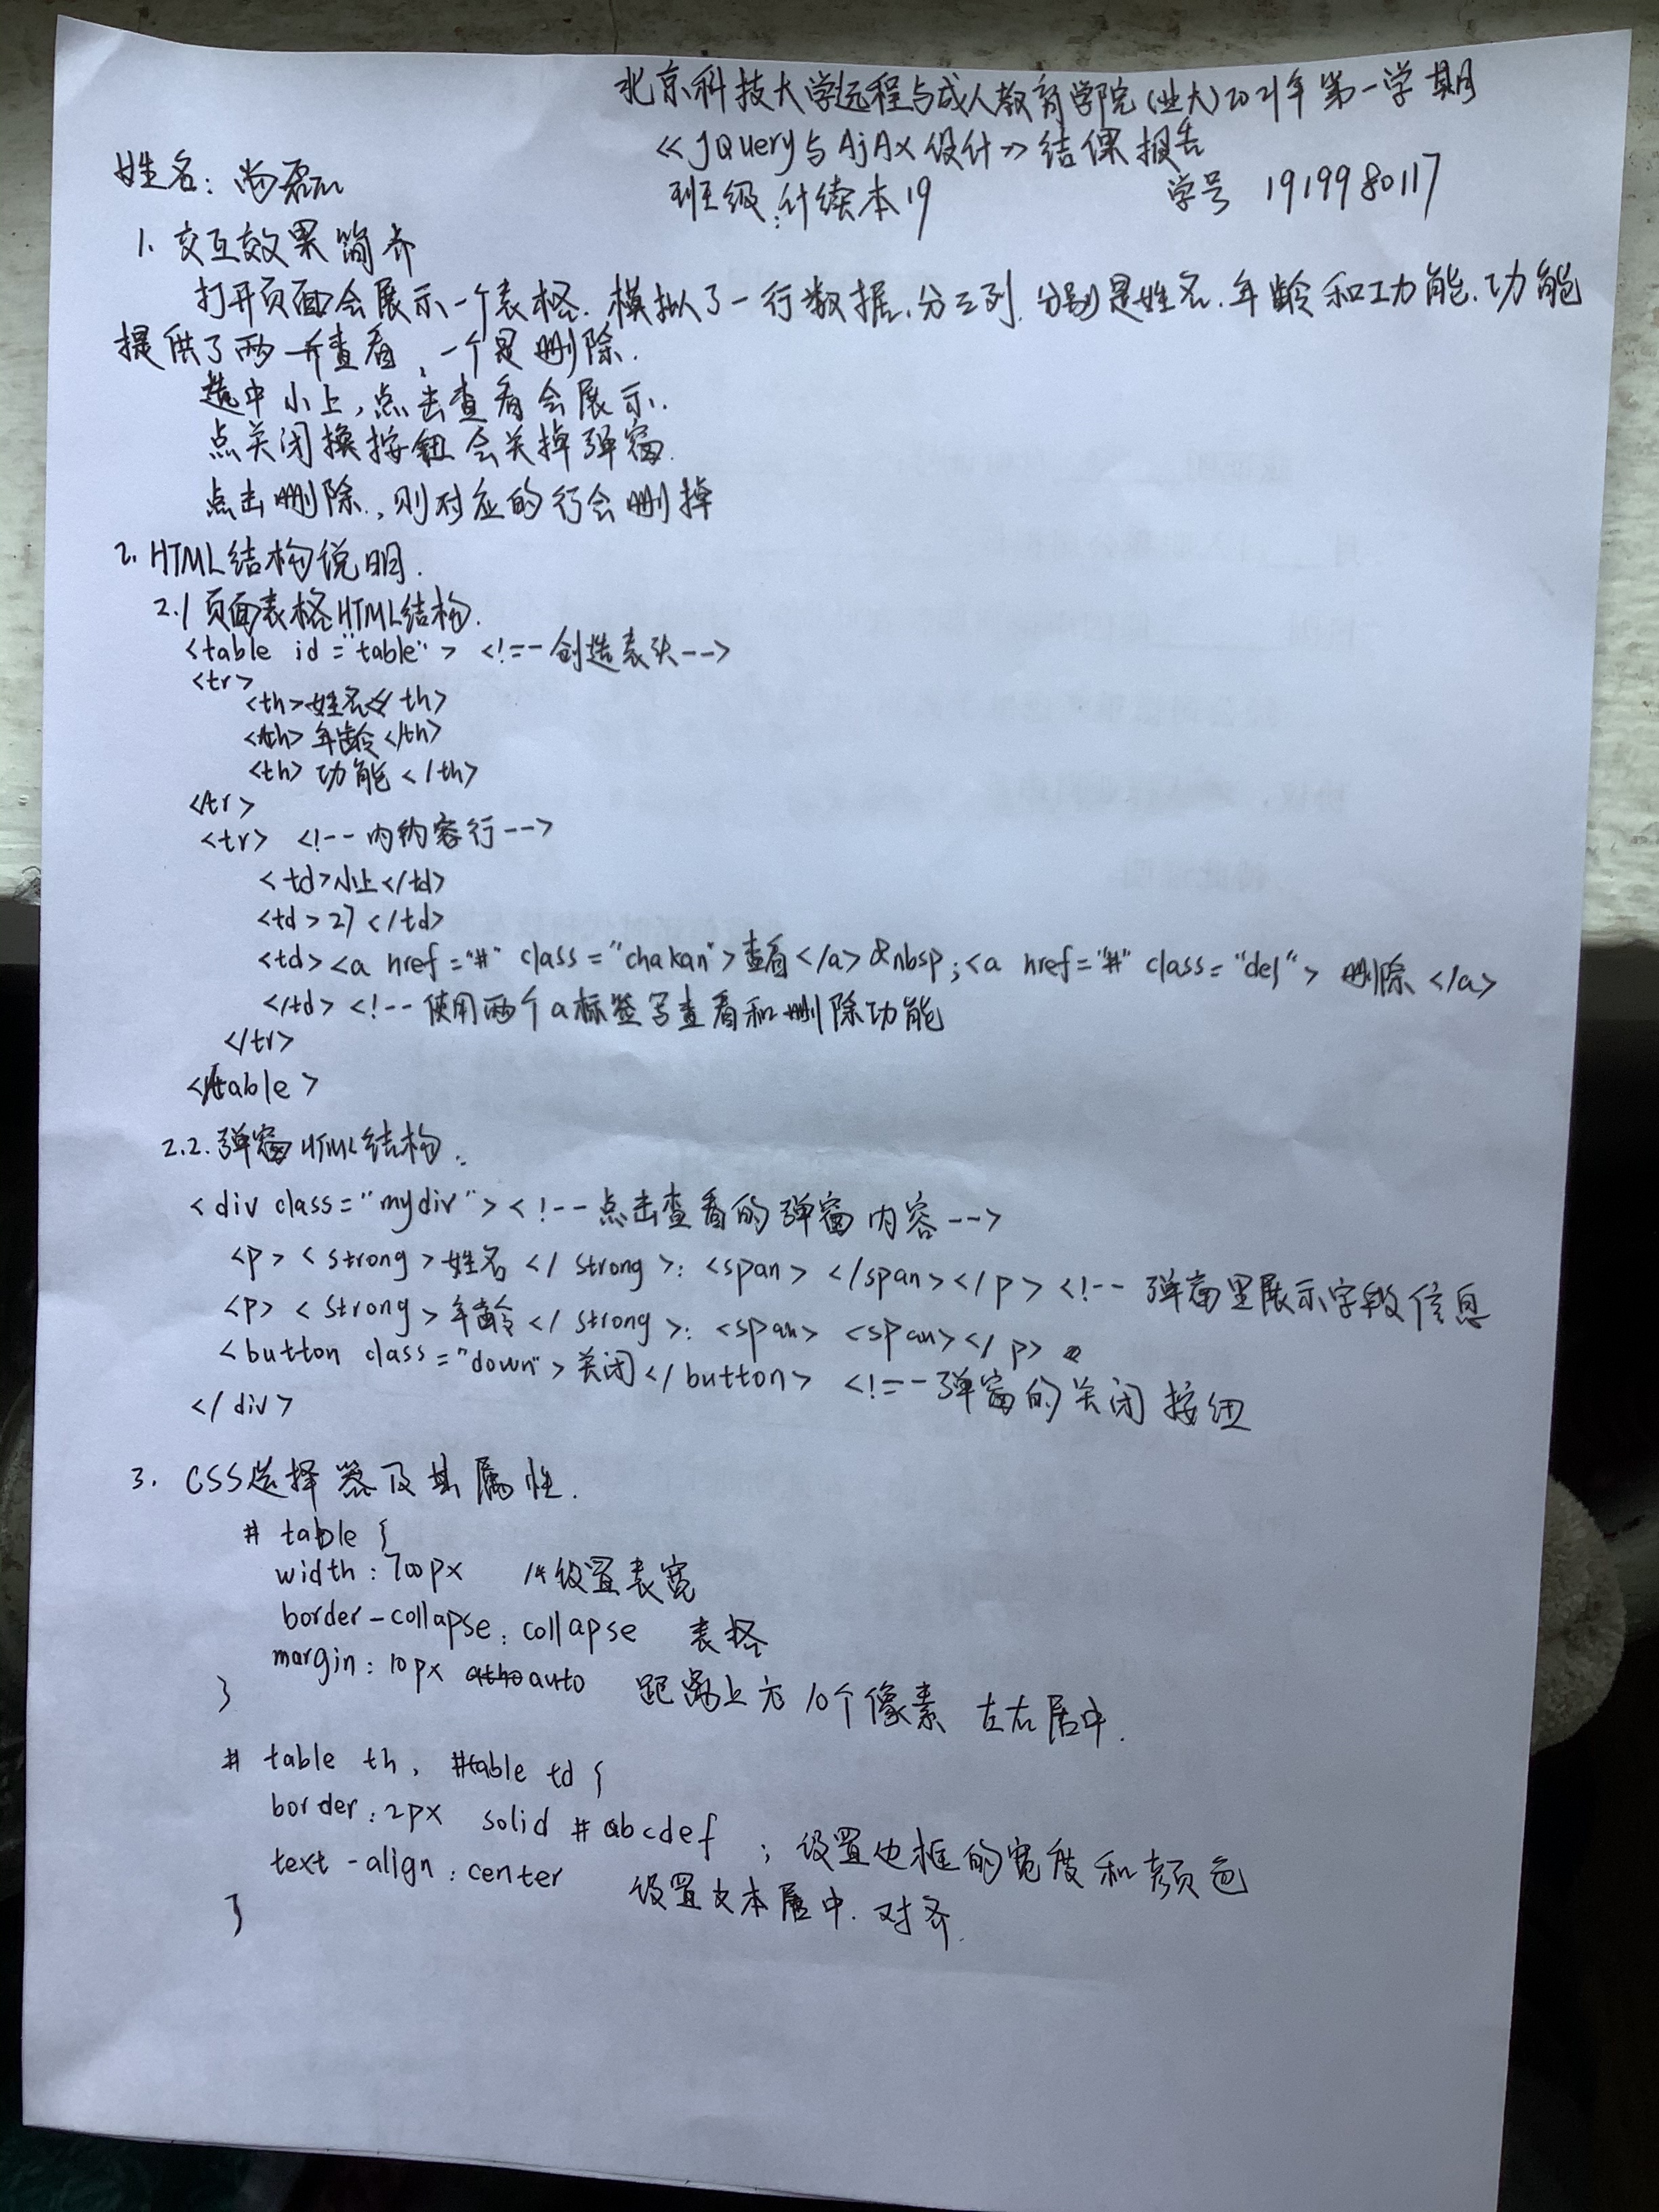 北京科技大学远程与成人教育学院(业大)2021年第一学期
《JQuery与AjAx设计》结课报告
姓名：尚磊 班级：计续本19 学号 1919980117
1. 交互效果简介
打开页面会展示一个表格.模拟了一行数据.分三列.分别是姓名.年龄和功能.功能
提供了两个查看,一个是删除.
选中小上,点击查看会展示.
点关闭按钮会关掉弹窗.
点击删除.,则对应的行会删掉
2. HTML结构说明.
2.1 页面表格HTML结构.
<table id="table"> <!--创造表头-->
<tr>
<th>姓名</th>
<th>年龄</th>
<th>功能</th>
<tr>
<tr> <!--内容行-->
<td>小上</td>
<td>27</td>
<td><a href="#" class="chakan">查看</a>&nbsp;<a href="#" class="del">删除</a>
</td> <!--使用两个a标签写查看和删除功能
</tr>
</table>
2.2.弹窗HTML结构.
<div class="mydiv"><!--点击查看的弹窗内容-->
<p><strong>姓名</strong>:<span></span></p><!--弹窗里展示字段信息
<p><strong>年龄</strong>:<span><span></p>
<button class="down">关闭</button> <!--弹窗的关闭按钮
</div>
3. CSS选择器及其属性.
# table {
width:700px /*设置表宽
border-collapse:collapse 表格
margin:10px auto 距离上方10个像素 左右居中.
}
# table th, #table td {
border:2px solid #abcdef ;设置边框的宽度和颜色
text-align:center 设置文本居中.对齐.
}